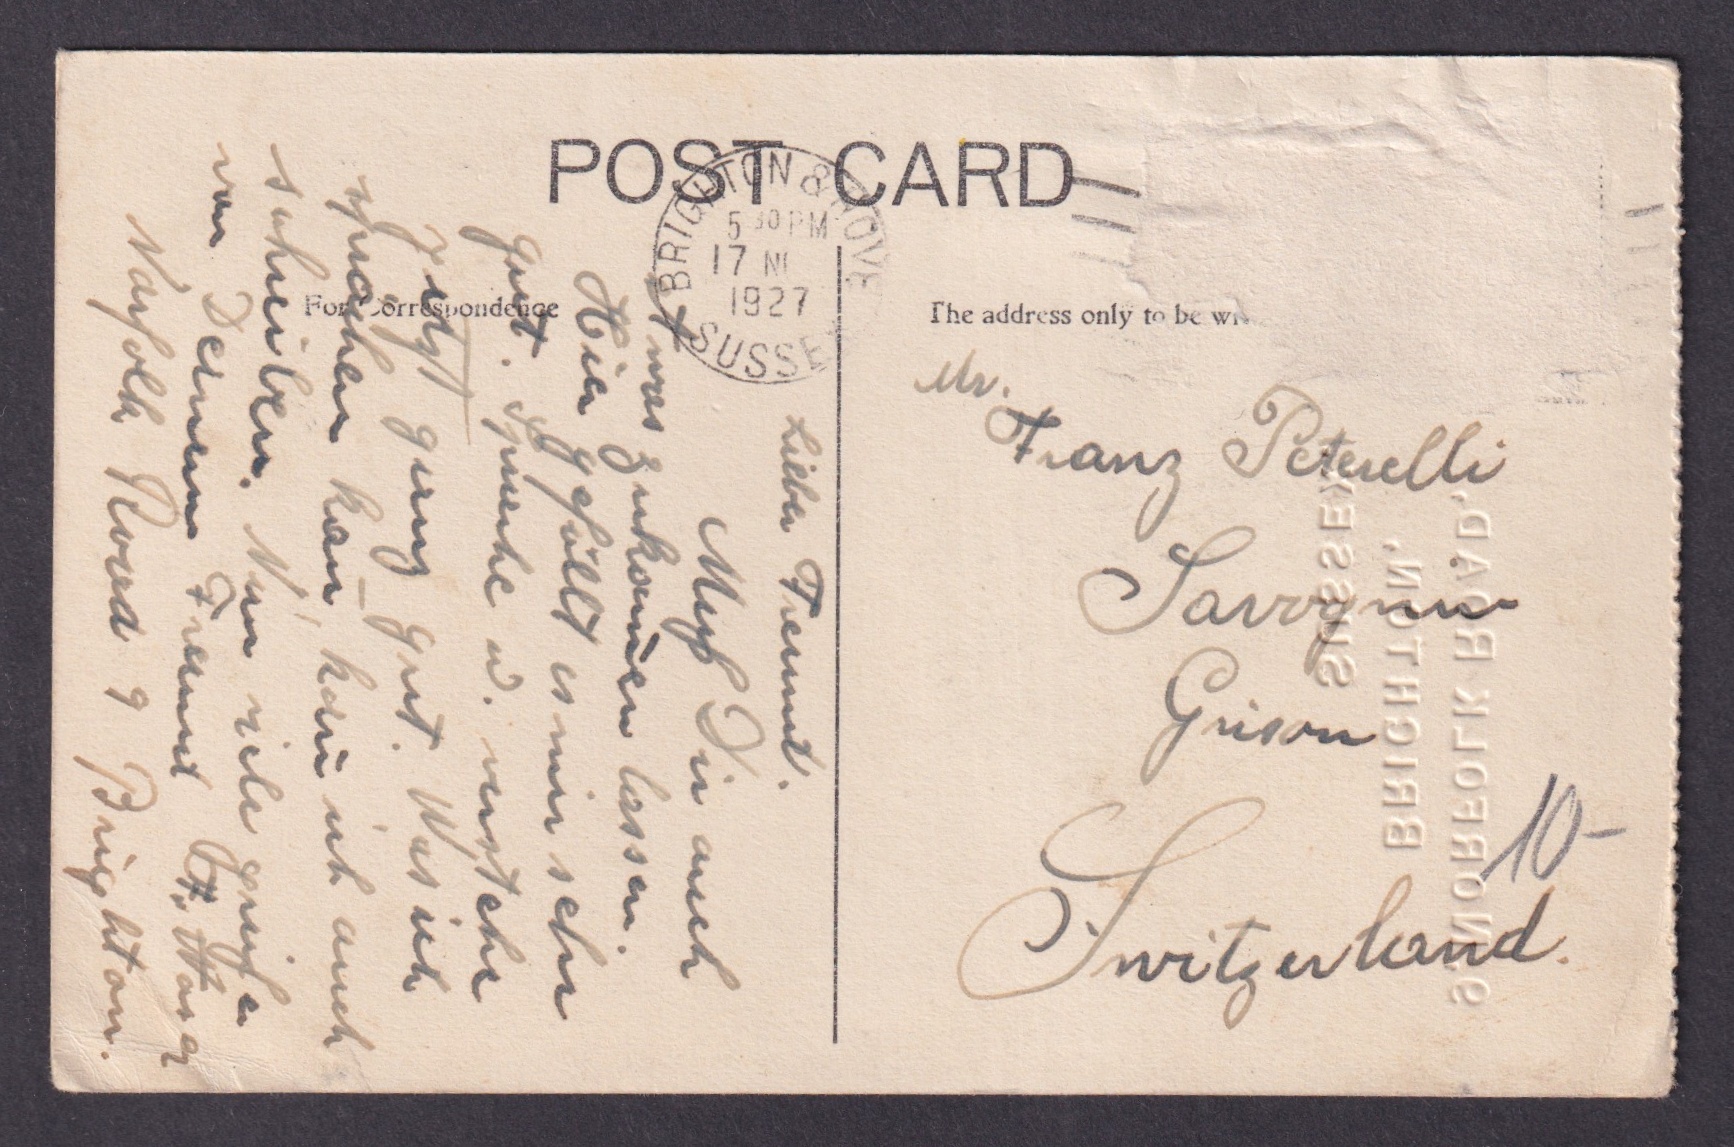 POST CARD
BRIGHTON & HOVE
5 30 PM
17 NO
1927
SUSSEX
For Correspondence
The address only to be wr
Lieber Freund.
Muß Dir auch
was zukom̄en lassen.
Hier gefällt es mir sehr
gut. Spreche u. verstehe
jetzt genug gut. Was ich
sprechen kan̄ kan̄ ich auch
schreiben. Nun viele grüße
von Deinem Freund
Norfolk Road 9 Brighton.
Mr.
Franz Peterelli
Savognin
Grison
Switzerland.
10-
9, NORFOLK ROAD,
BRIGHTON,
SUSSEX